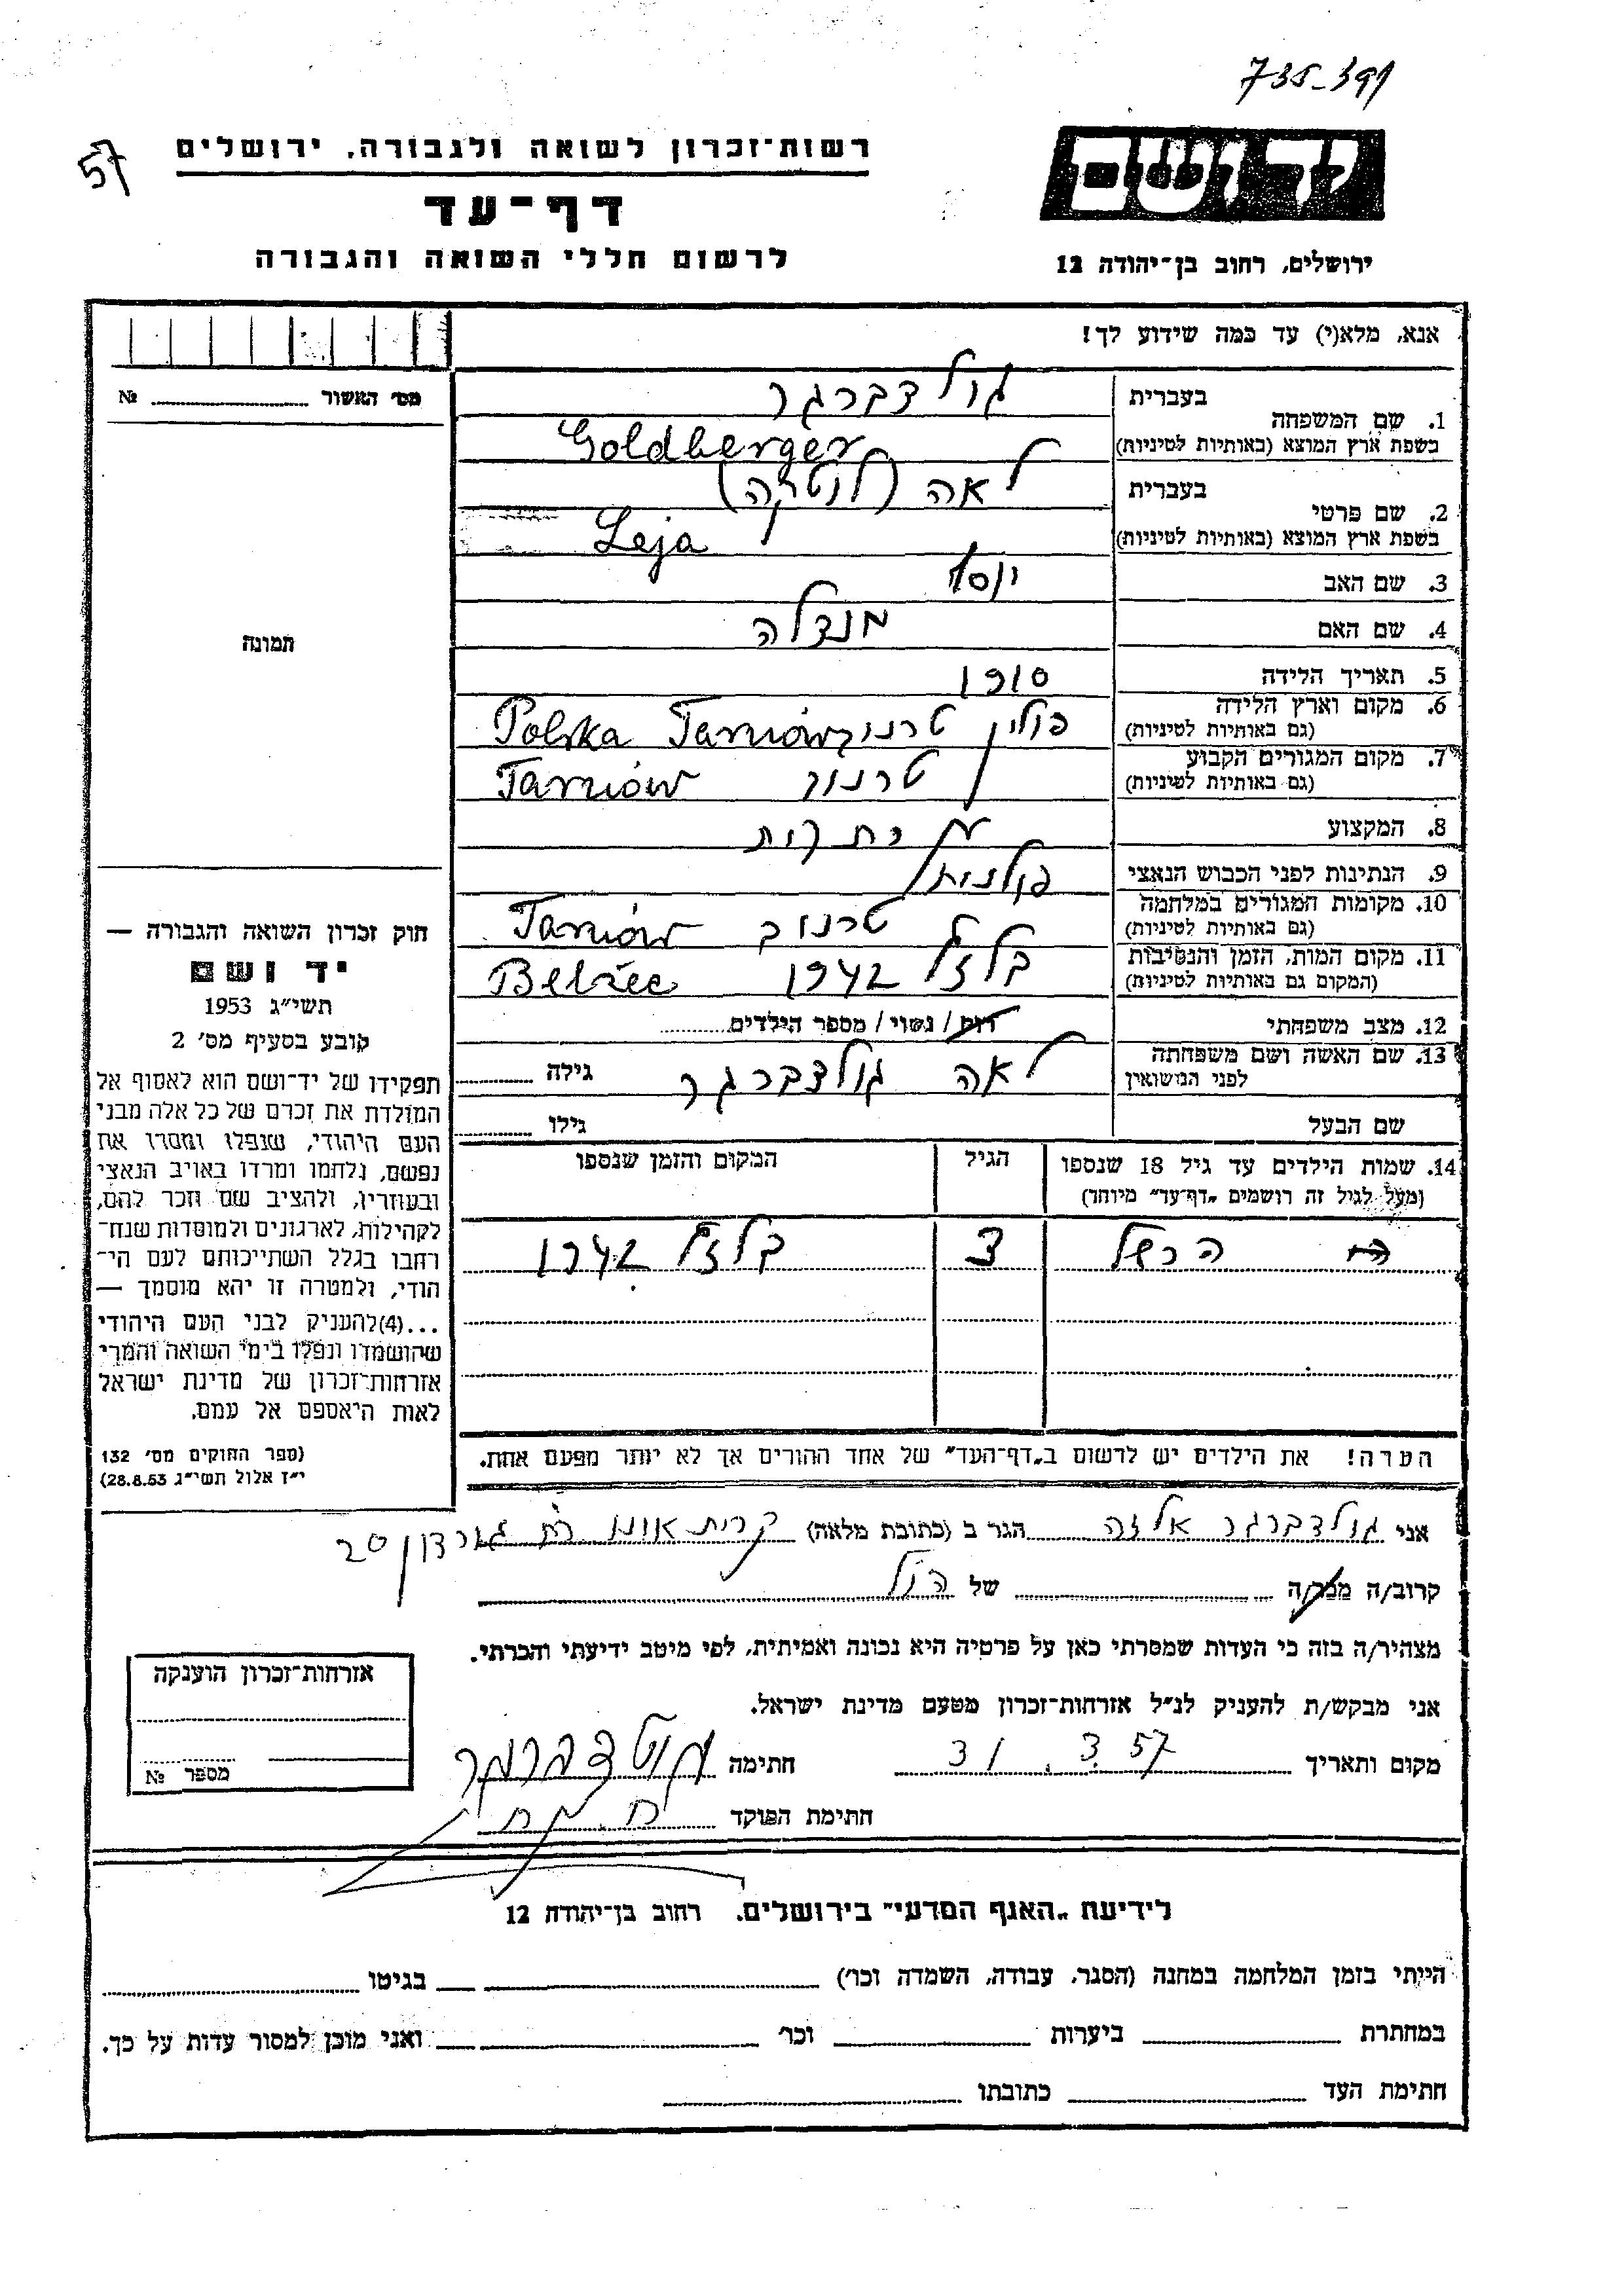 735-391
57
רשות־זכרון לשואה ולגבורה, ירושלים
דף־עד
לרשום חללי השואה והגבורה
ידושם
ירושלים, רחוב בן־יהודה 12
אנא, מלא(י) עד כמה שידוע לך!
מס׳ האשור № 
1. שם המשפחה
בעברית גולדברגר
בשפת ארץ המוצא (באותיות לטיניות) Goldberger
2. שם פרטי
בעברית לאה
בשפת ארץ המוצא (באותיות לטיניות) Leja
3. שם האב יוסף
4. שם האם מנדלה
5. תאריך הלידה 1910
6. מקום וארץ הלידה
(גם באותיות לטיניות) פולין טרנוב Polska Tarnów
7. מקום המגורים הקבוע
(גם באותיות לטיניות) טרנוב Tarnów
8. המקצוע
9. הנתינות לפני הכבוש הנאצי פולנית
10. מקומות המגורים במלחמה
(גם באותיות לטיניות) טרנוב Tarnów
11. מקום המות, הזמן והנסיבות
(המקום גם באותיות לטיניות) 1942 Belzec
12. מצב משפחתי רווק / נשוי / מספר הילדים
13. שם האשה ושם משפחתה
לפני הנישואין לאה גולדברגר גילה
שם הבעל גילו
14. שמות הילדים עד גיל 18 שנספו
(מעל לגיל זה רושמים „דף־עד״ מיוחד)
הגיל
המקום והזמן שנספו
הרשל 3 1942
הערה! את הילדים יש לרשום ב„דף־העד״ של אחד ההורים אך לא יותר מפעם אחת.
תמונה
חוק זכרון השואה והגבורה —
יד ושם
תשי״ג 1953
קובע בסעיף מס׳ 2
תפקידו של יד־ושם הוא לאסוף אל
המולדת את זכרם של כל אלה מבני
העם היהודי, שנפלו ומסרו את
נפשם, נלחמו ומרדו באויב הנאצי
ובעוזריו, ולהציב שם וזכר להם,
לקהילות, לארגונים ולמוסדות שנח־
רחבו בגלל השתייכותם לעם הי־
הודי, ולמטרה זו יהא מוסמך —
...(4)להעניק לבני העם היהודי
שהושמדו ונפלו בימי השואה והמרי
אזרחות־זכרון של מדינת ישראל
לאות היאספם אל עמם.
(ספר החוקים מס׳ 132
י״ז אלול תשי״ג 28.8.53)
אני גולדברגר אלזה הגר ב (כתובת מלאה) קרית אונו רח גורדון 20
קרוב/ה מכר/ה של הנ״ל
מצהיר/ה בזה כי העדות שמסרתי כאן על פרטיה היא נכונה ואמיתית, לפי מיטב ידיעתי והכרתי.
אני מבקש/ת להעניק לנ״ל אזרחות־זכרון מטעם מדינת ישראל.
מקום ותאריך 31.3.57 חתימה
חתימת הפוקד
אזרחות־זכרון הוענקה
מספר №
לידיעת „האגף המדעי״ בירושלים. רחוב בן־יהודה 12
הייתי בזמן המלחמה במחנה (הסגר, עבודה, השמדה וכו׳) בגיטו
במחתרת ביערות וכו׳ ואני מוכן למסור עדות על כך.
חתימת העד כתובתו